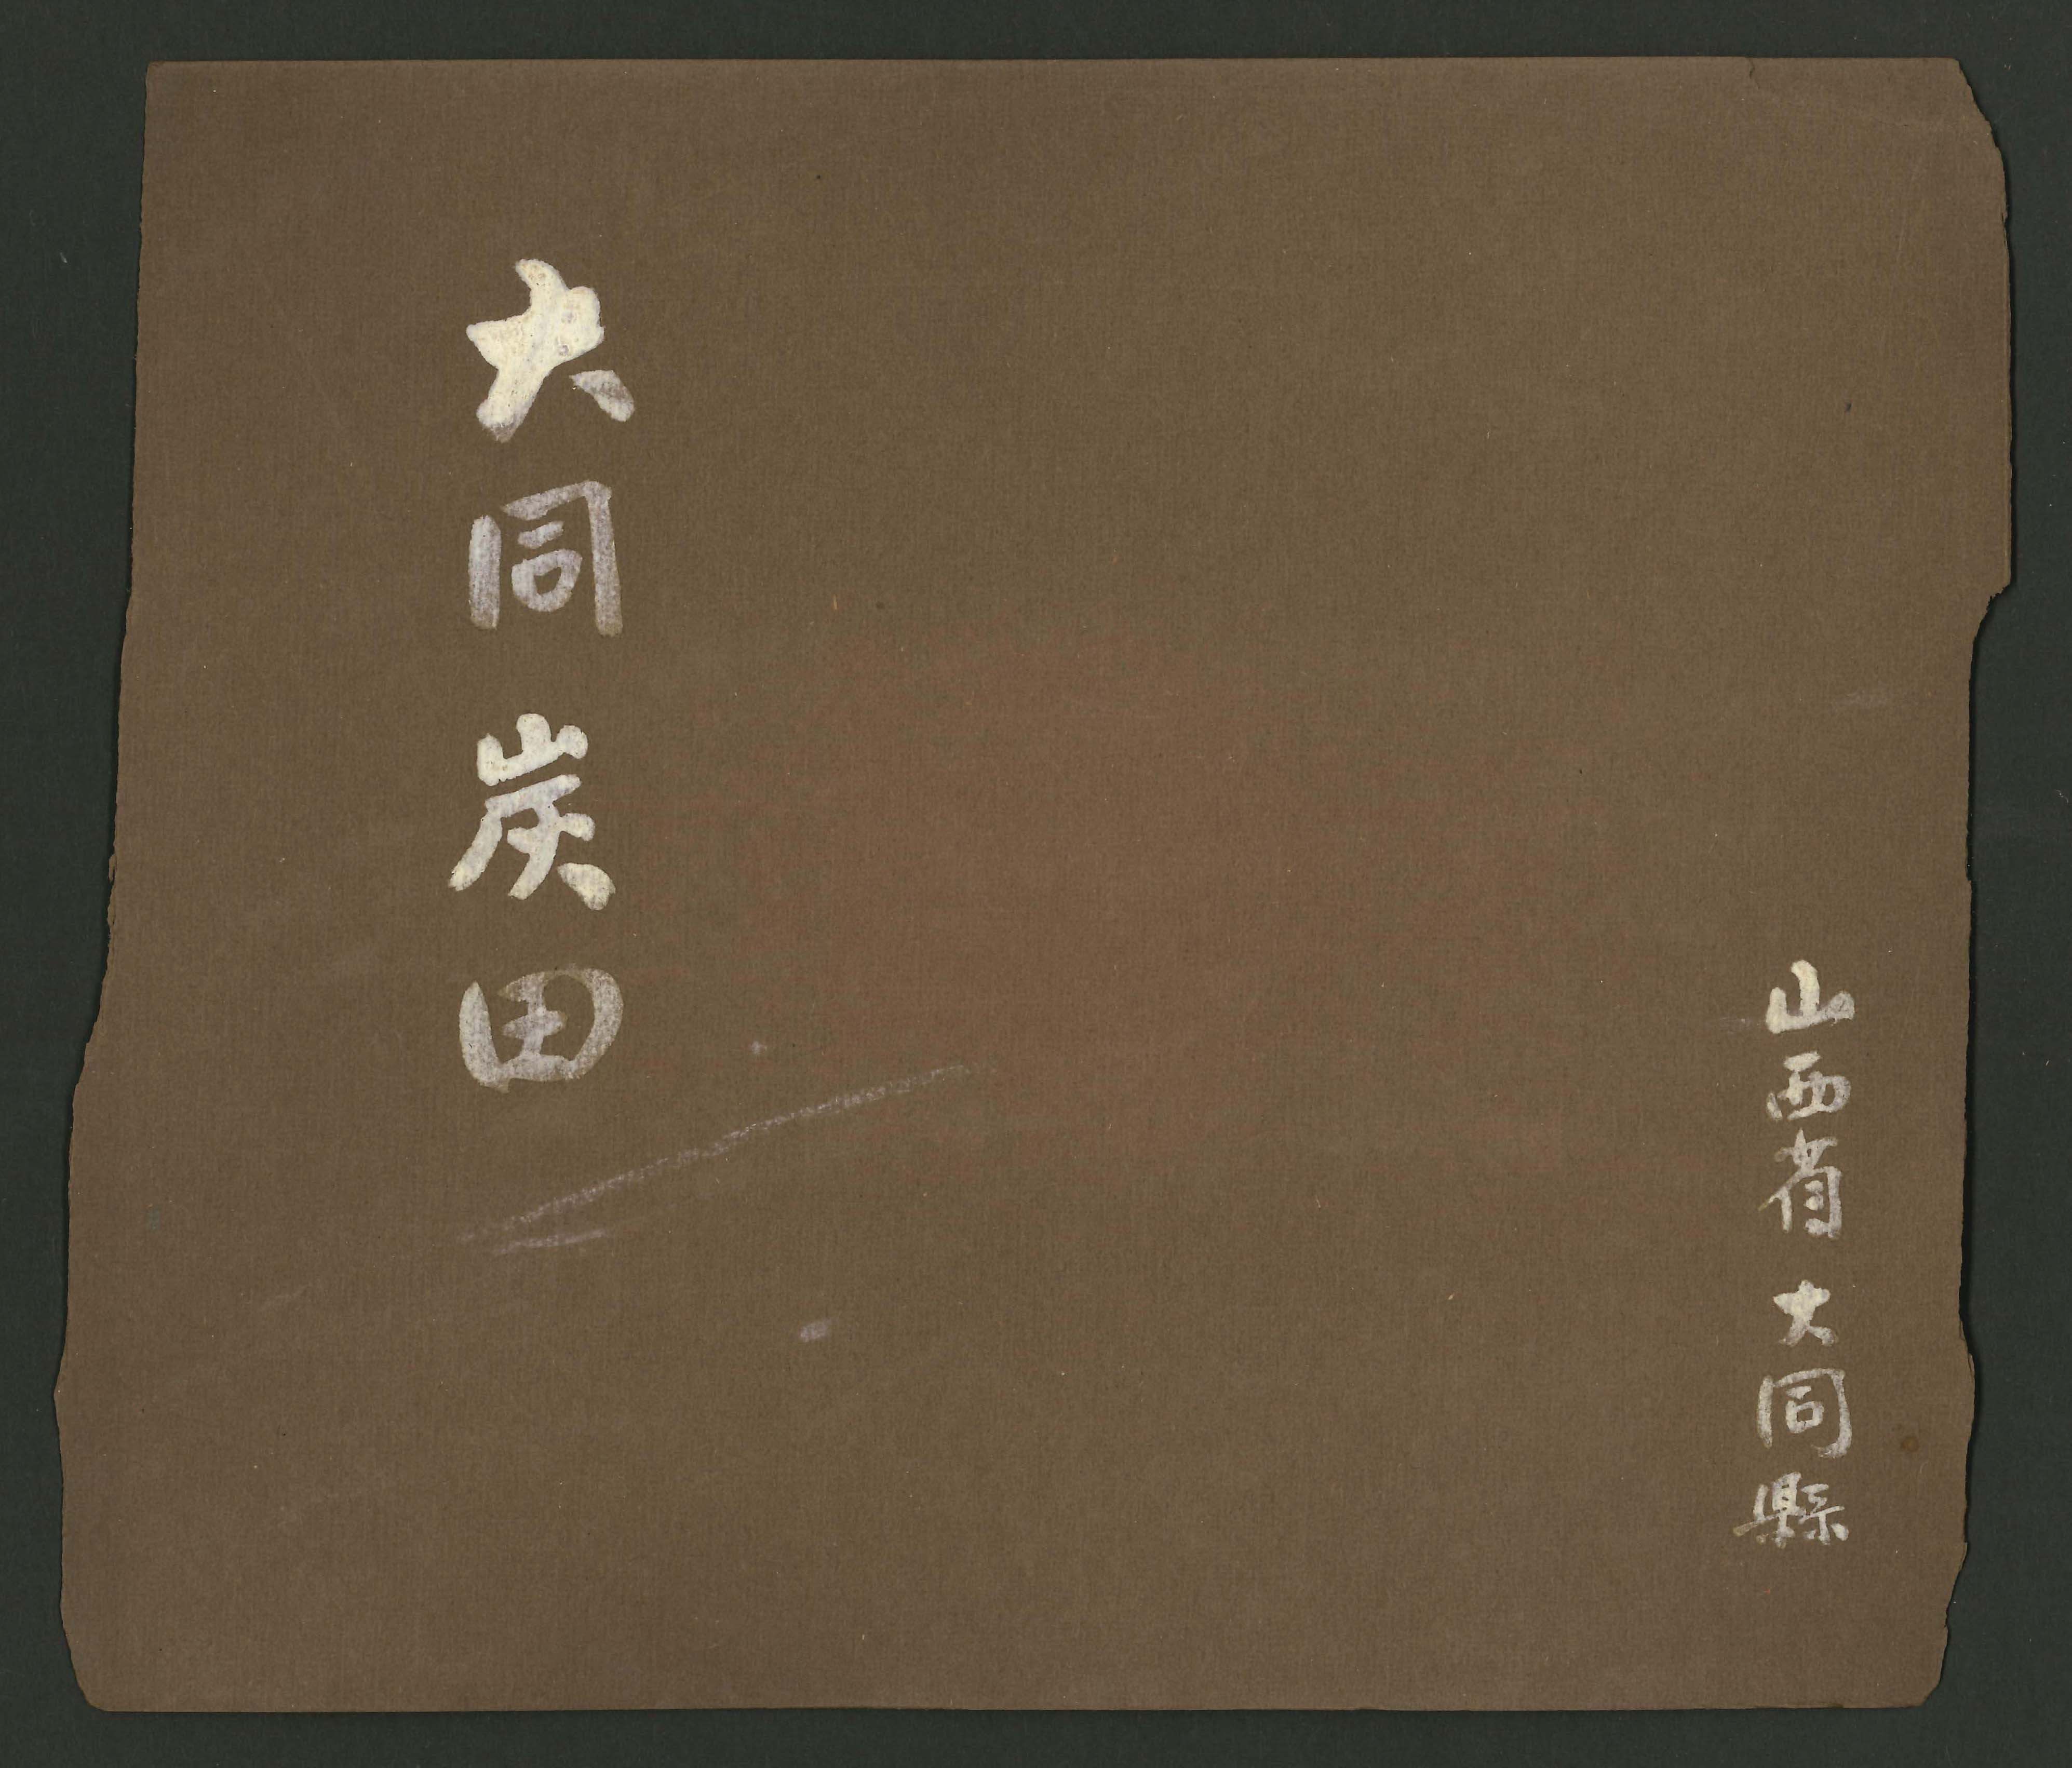 山西省 大同縣
大同炭田